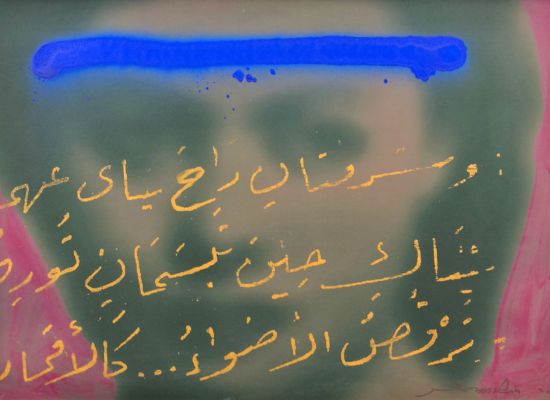 وشرفتانِ رَاحَ يناى عنهم
يناكِ حِينَ تَبسَمَانِ تُورِق
تَرْقُصُ الأضواءُ... كَالأقمار